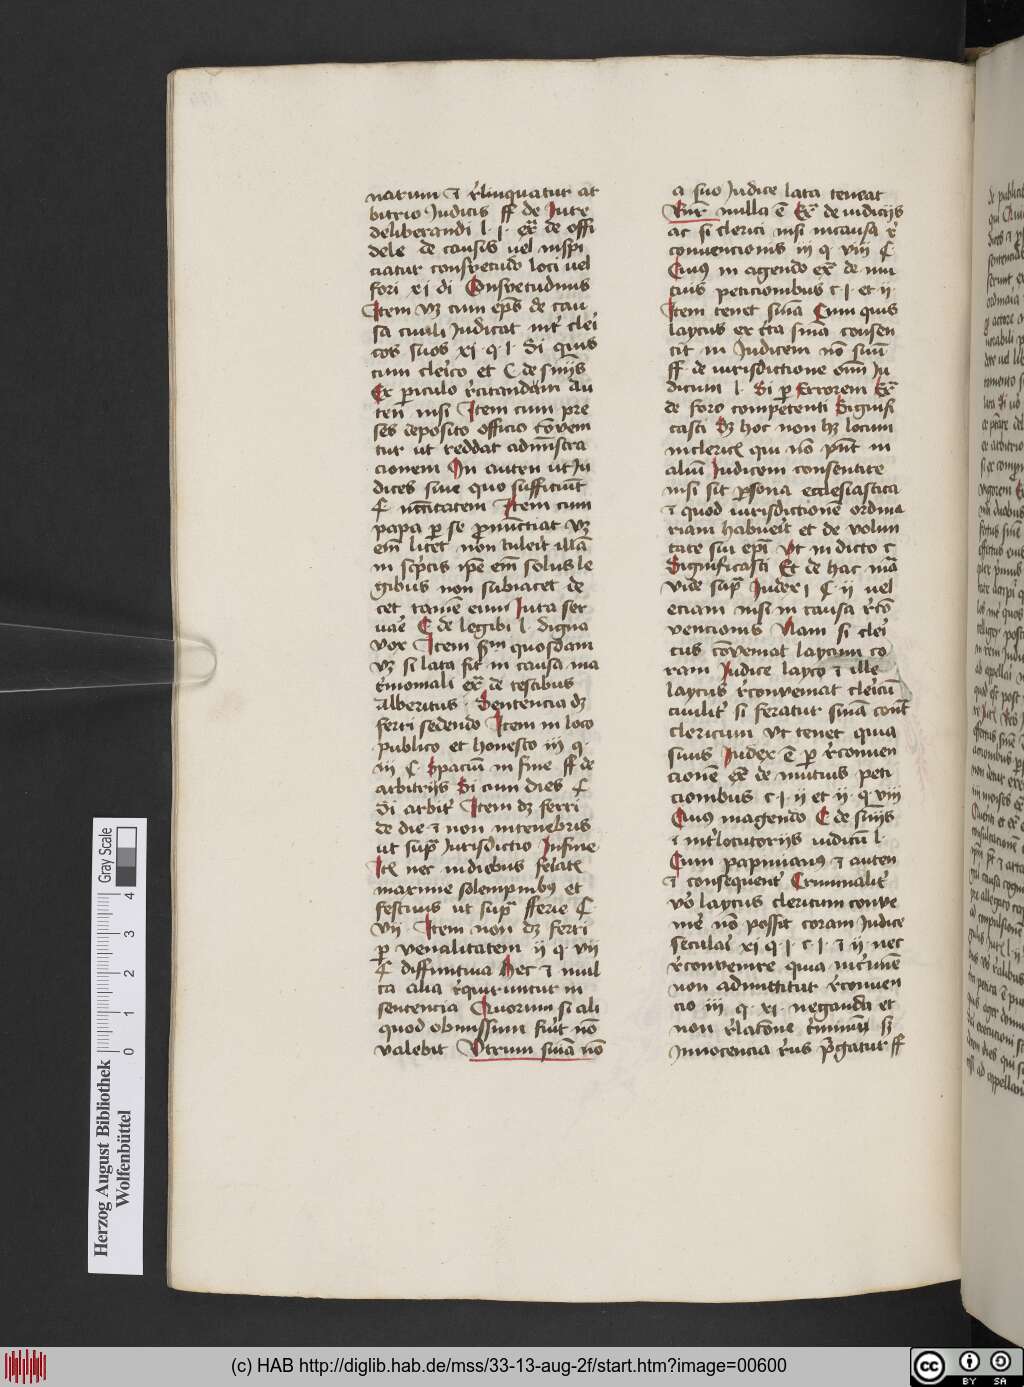 narum ⁊ r̄linquatur ar
bitrio Judicis ff de Jure
deliberandi l · j · ex̄ de offi
dele de causis uel inspi
ciatur consvetudo loci uel
fori xj di Consvetudinis
Item vꝫ cum ep̄s de cau
sa ciuili Judicat int̄ clei
cos suos xj · q · l · Si quis
cum cleico et C de sn̄ijs
Ex periculo r̄citandam au
ten nisi Item cum pre
ses deposito officio
tur ut reddat admīstra
cionem In auten ut Ju
dices siue quo sufficiūt
papa ꝑ se ꝓnuntiat vꝫ
em̄ licet non tuleit illā
in sc̄ptis ip̄e em̄ solus le
gibus non subiacet de
cet tamē eum Jura ser
uaē C de legibꝫ l · digna
vox Item quosdam
vꝫ si lata sit in causa ma
t̄monali ex̄ de testibus
Albericus · Sentencia dꝫ
ferri sedendo Item in loco
publico et honesto iij q ·
iij C · Spaciū in fine ff de
arbitrijs Si cum dies
Si arbit̄ Item dꝫ ferri
de die ⁊ non in tenebris
ut sup̄ Jurisdictio Infine
nec in diebus
maxime solempnibꝫ et
festiuis ut sup̄ fferie
vij · Item non dꝫ ferri
ꝑ venalitatem ij q · vij
diffinitiua Hec ⁊ mul
ta alia r̄quiruntur in
sentencia Quorum si ali
quod obmissum fūit nō
valebit Vtrum sn̄ia nō
a suo Judice lata teneat
nulla ē Ex̄ de iudicijs
at si clerici nisi in causa r̄
conuencionis iij q · viij
Cuiꝰ in agendo ex̄ de mu
tuis peticionibus c · j · et ij ·
Item tenet sn̄ia Cum quis
laycus ex c̄ta sn̄ia consen
cit in Judicem nō suū
ff de iurisdictione om̄ Ju
dicum l · Si ꝑ Errorem Ex̄
de foro competenti Signifi
casti Sꝫ hoc non hꝫ locum
in clericis qui nō pn̄t in
aliū Judicem consentire
nisi sit ꝑsona ecclesiastica
⁊ quod iurisdictionē ordina
riam habueit et de volun
tate sui epī Vt in dicto c
Significasti Et de hac mā
vide sup̄ Judex j C ij uel
eciam nisi in causa r̄cō
vencionis Nam si clei
cus cōveniat laycum co
ram Judice layco ⁊ ille
laycus r̄conveniat cleicū
ciuilit̄ si feratur sn̄ia cont̄
clericum vt tenet quia
suus Judex ē ꝑ r̄conuen
cionē ex̄ de mutuis peti
cionibus c · j · ij et ij · q · viij
Cuiꝰ in agendo C de sn̄ijs
⁊ int̄locutorijs iudicū l ·
Cum papinianus ⁊ auten
⁊ consequent̄ Criminalit̄
vō laycus clericum conve
niē nō possit coram Judice
seculai xj q · j · c · j · ⁊ ij nec
r̄convenire quia
non admittitur r̄conven
cio iij q · xj · neganda et
non r̄latōne
Innocencia r̄us ff
Herzog August Bibliothek
Wolfenbüttel
Gray Scale
0 1 2 3 4
(c) HAB http://diglib.hab.de/mss/33-13-aug-2f/start.htm?image=00600
cc BY SA